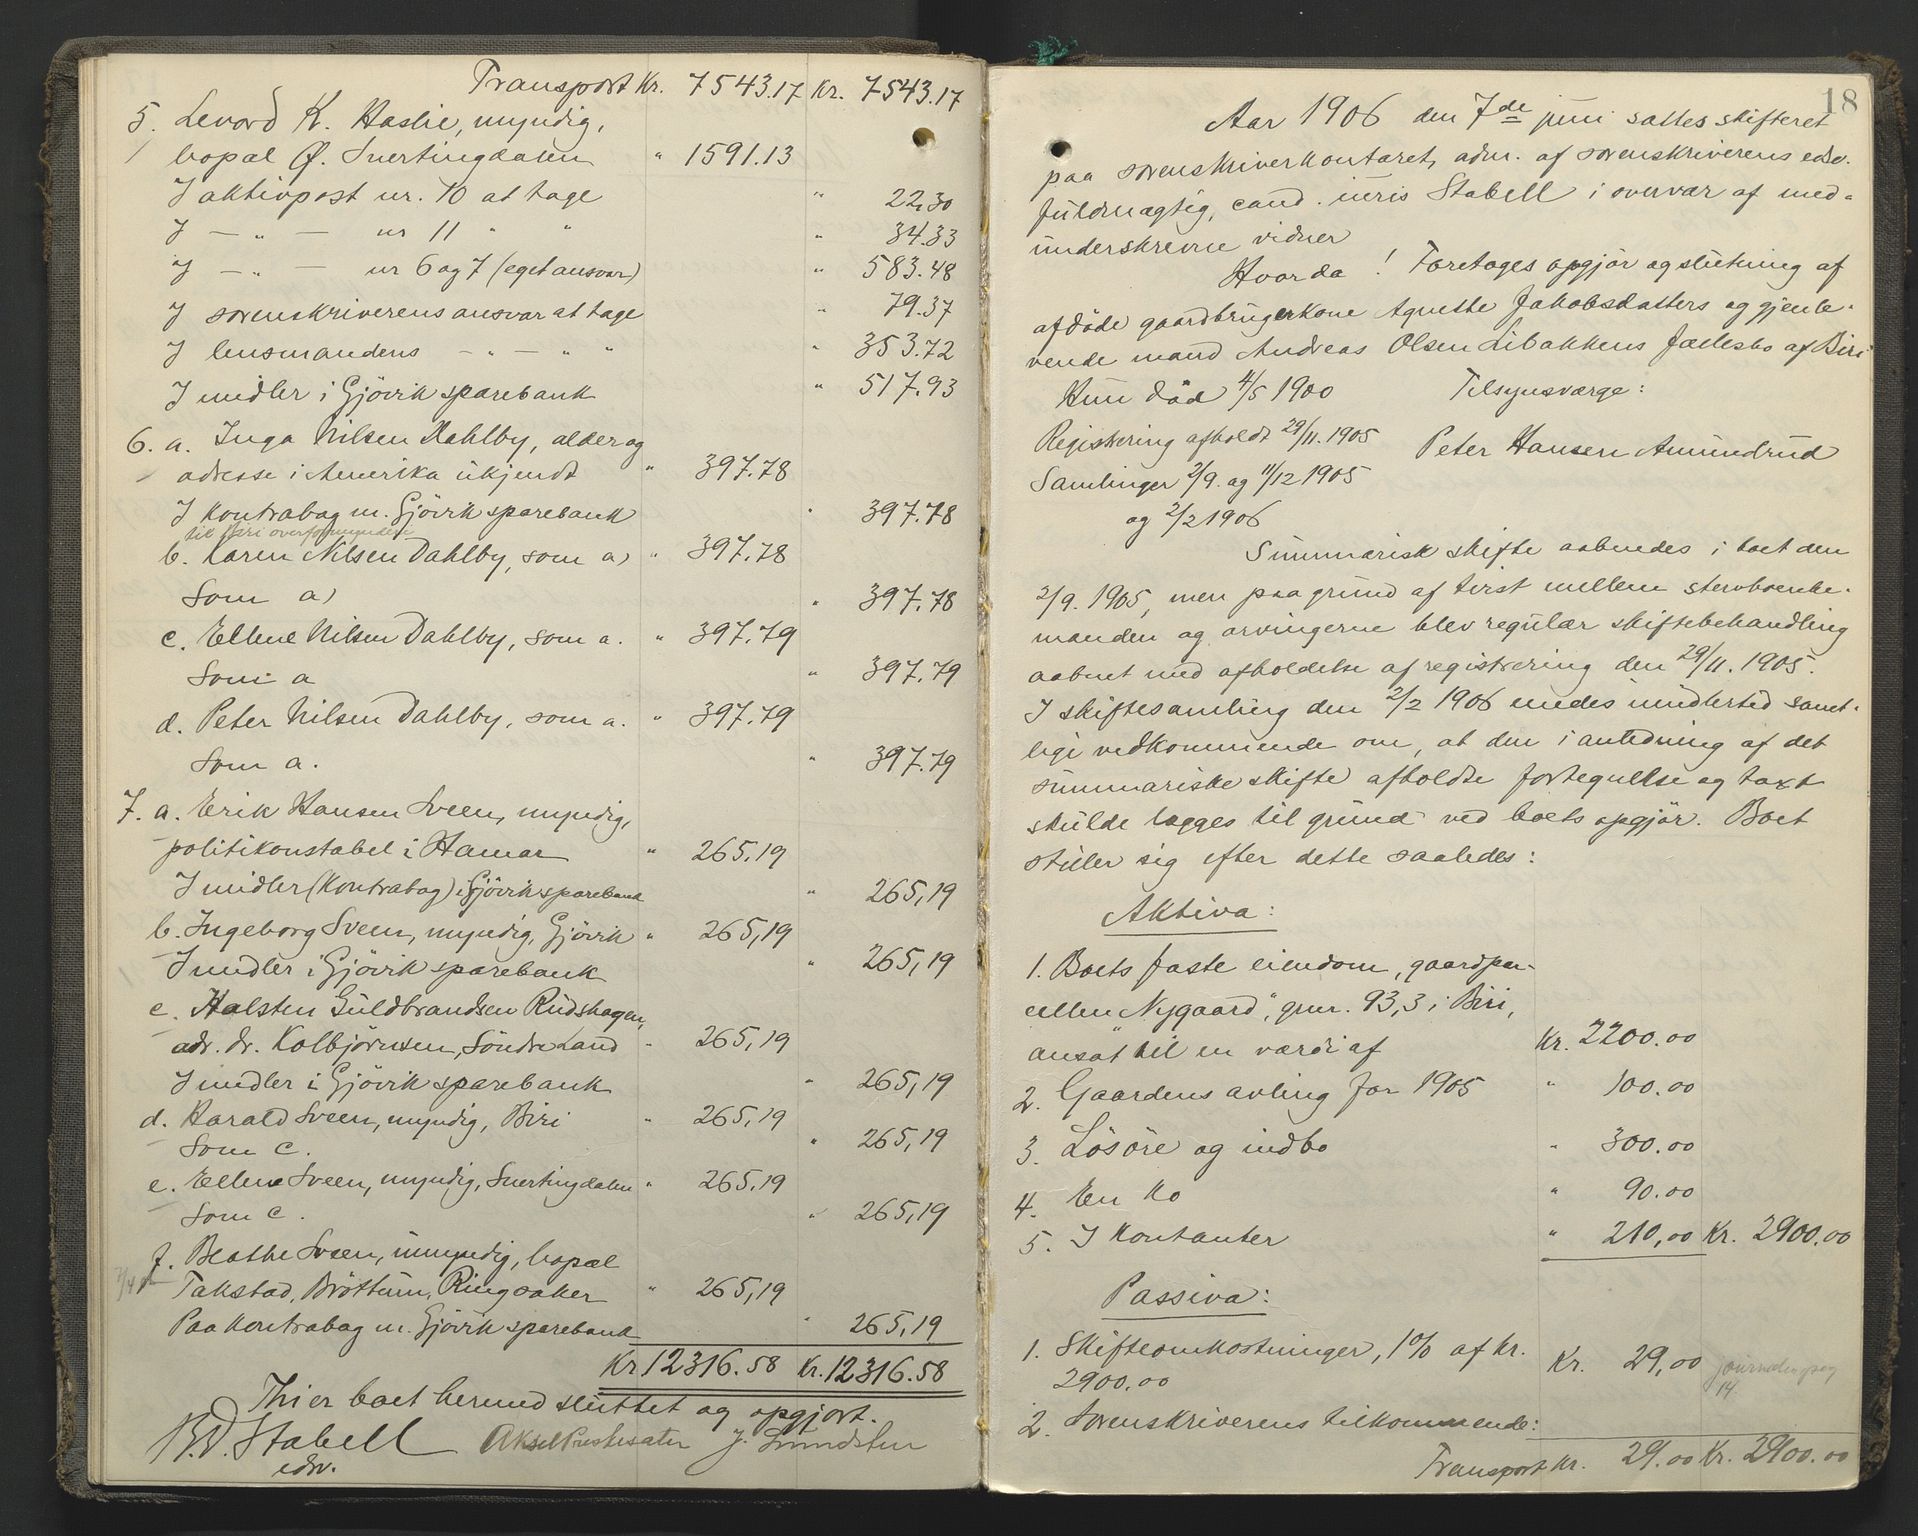 Transport Kr. 7543.17 Kr. 7543.17
5. Levord K. Haslie, myndig,
bopæl Ø. Snertingdalen " 1591.13
I aktivpost nr. 10 at tage " 22,30
I — " — nr 11 " " " 34.33
I — " — nr 6 og 7 (eget ansvar) " 583.48
I sorenskriverens ansvar at tage " 79.37
I lensmandens — " — " " " 353.72
I midler i Gjövik sparebank " 517.93
6. a. Inga Nilsen Dahlby, alder og
adresse i Amerika ukjendt " 397.78
I kontrabog m. Gjövik sparebank " 397.78
til Biri overformynderi
b. Karen Nilsen Dahlby, som a) " 397.78
Som a) " 397.78
c. Ellene Nilsen Dahlby, som a. " 397.79
Som a " 397.79
d. Peter Nilsen Dahlby, som a. " 397.79
Som a. " 397.79
7. a. Erik Hansen Sveen, myndig,
politikonstabel i Hamar " 265,19
I midler (Kontrabog) i Gjövik sparebank " 265,19
b. Ingeborg Sveen, myndig, Gjövik " 265,19
I midler i Gjövik sparebank " 265,19
c. Halsten Guldbrandsen Rudshagen,
adr. dr. Kolbjörnsen, Söndre Land " 265,19
I midler i Gjövik sparebank " 265,19
d. Harald Sveen, myndig, Biri " 265,19
Som c. " 265,19
e. Ellene Sveen, myndig, Snertingdalen " 265,19
Som c. " 265,19
f. Beathe Sveen, umyndig, bopæl
Takstad, Bröttum, Ringsaker " 265,19
Paa kontrabog m. Gjövik sparebank " 265,19
Kr 12316.58 Kr. 12316.58
Thi er boet hermed sluttet og opgjort.
B.D. Stabell Aksel Prestesæter J. Smedsten
edsv.
18
Aar 1906 den 7de juni sattes skifteret
paa sorenskriverkontoret, adm. af sorenskriverens edsv.
fuldmægtig, cand. juris Stabell i overvær af med-
underskrevne vidner
Hvorda! Foretoges opgjör og slutning af
afdöde gaardbrugerkone Agnethe Jakobsdatters og gjenle-
vende mand Andreas Olsen Libakkens fællesbo af Biri
Hun död 4/5 1900 Tilsynsværge:
Registrering afholdt 29/11. 1905 Peter Hansen Amundrud
Samlinger 2/9. og 11/12 1905
og 2/2 1906
Summarisk skifte aabnedes i boet den
2/9. 1905, men paa grund af tvist mellem stervboenke-
manden og arvingerne blev regulær skiftebehandling
aabnet med afholdelse af registrering den 29/11. 1905.
I skiftesamling den 2/2 1906 enedes imidlertid samt-
lige vedkommende om, at den i anledning af det
summariske skifte afholdte fortegnelse og taxt
skulde lægges til grund ved boets opgjör. Boet
stiller sig efter dette saaledes:
Aktiva:
1. Boets faste eiendom, gaardpar-
cellen "Nygaard", gnr. 93,3 i Biri,
ansat til en værdi af Kr. 2200.00
2. Gaardens avling for 1905 " 100.00
3. Lösöre og indbo " 300.00
4. En ko " 90.00
5. I kontanter " 210,00 Kr. 2900.00
Passiva:
1. Skifteomkostninger, 1% af kr.
2900.00 Kr. 29,00 journalen pag
14.
2. Sorenskriverens tilkommende:
Transport Kr. 29.00 Kr. 2900.00